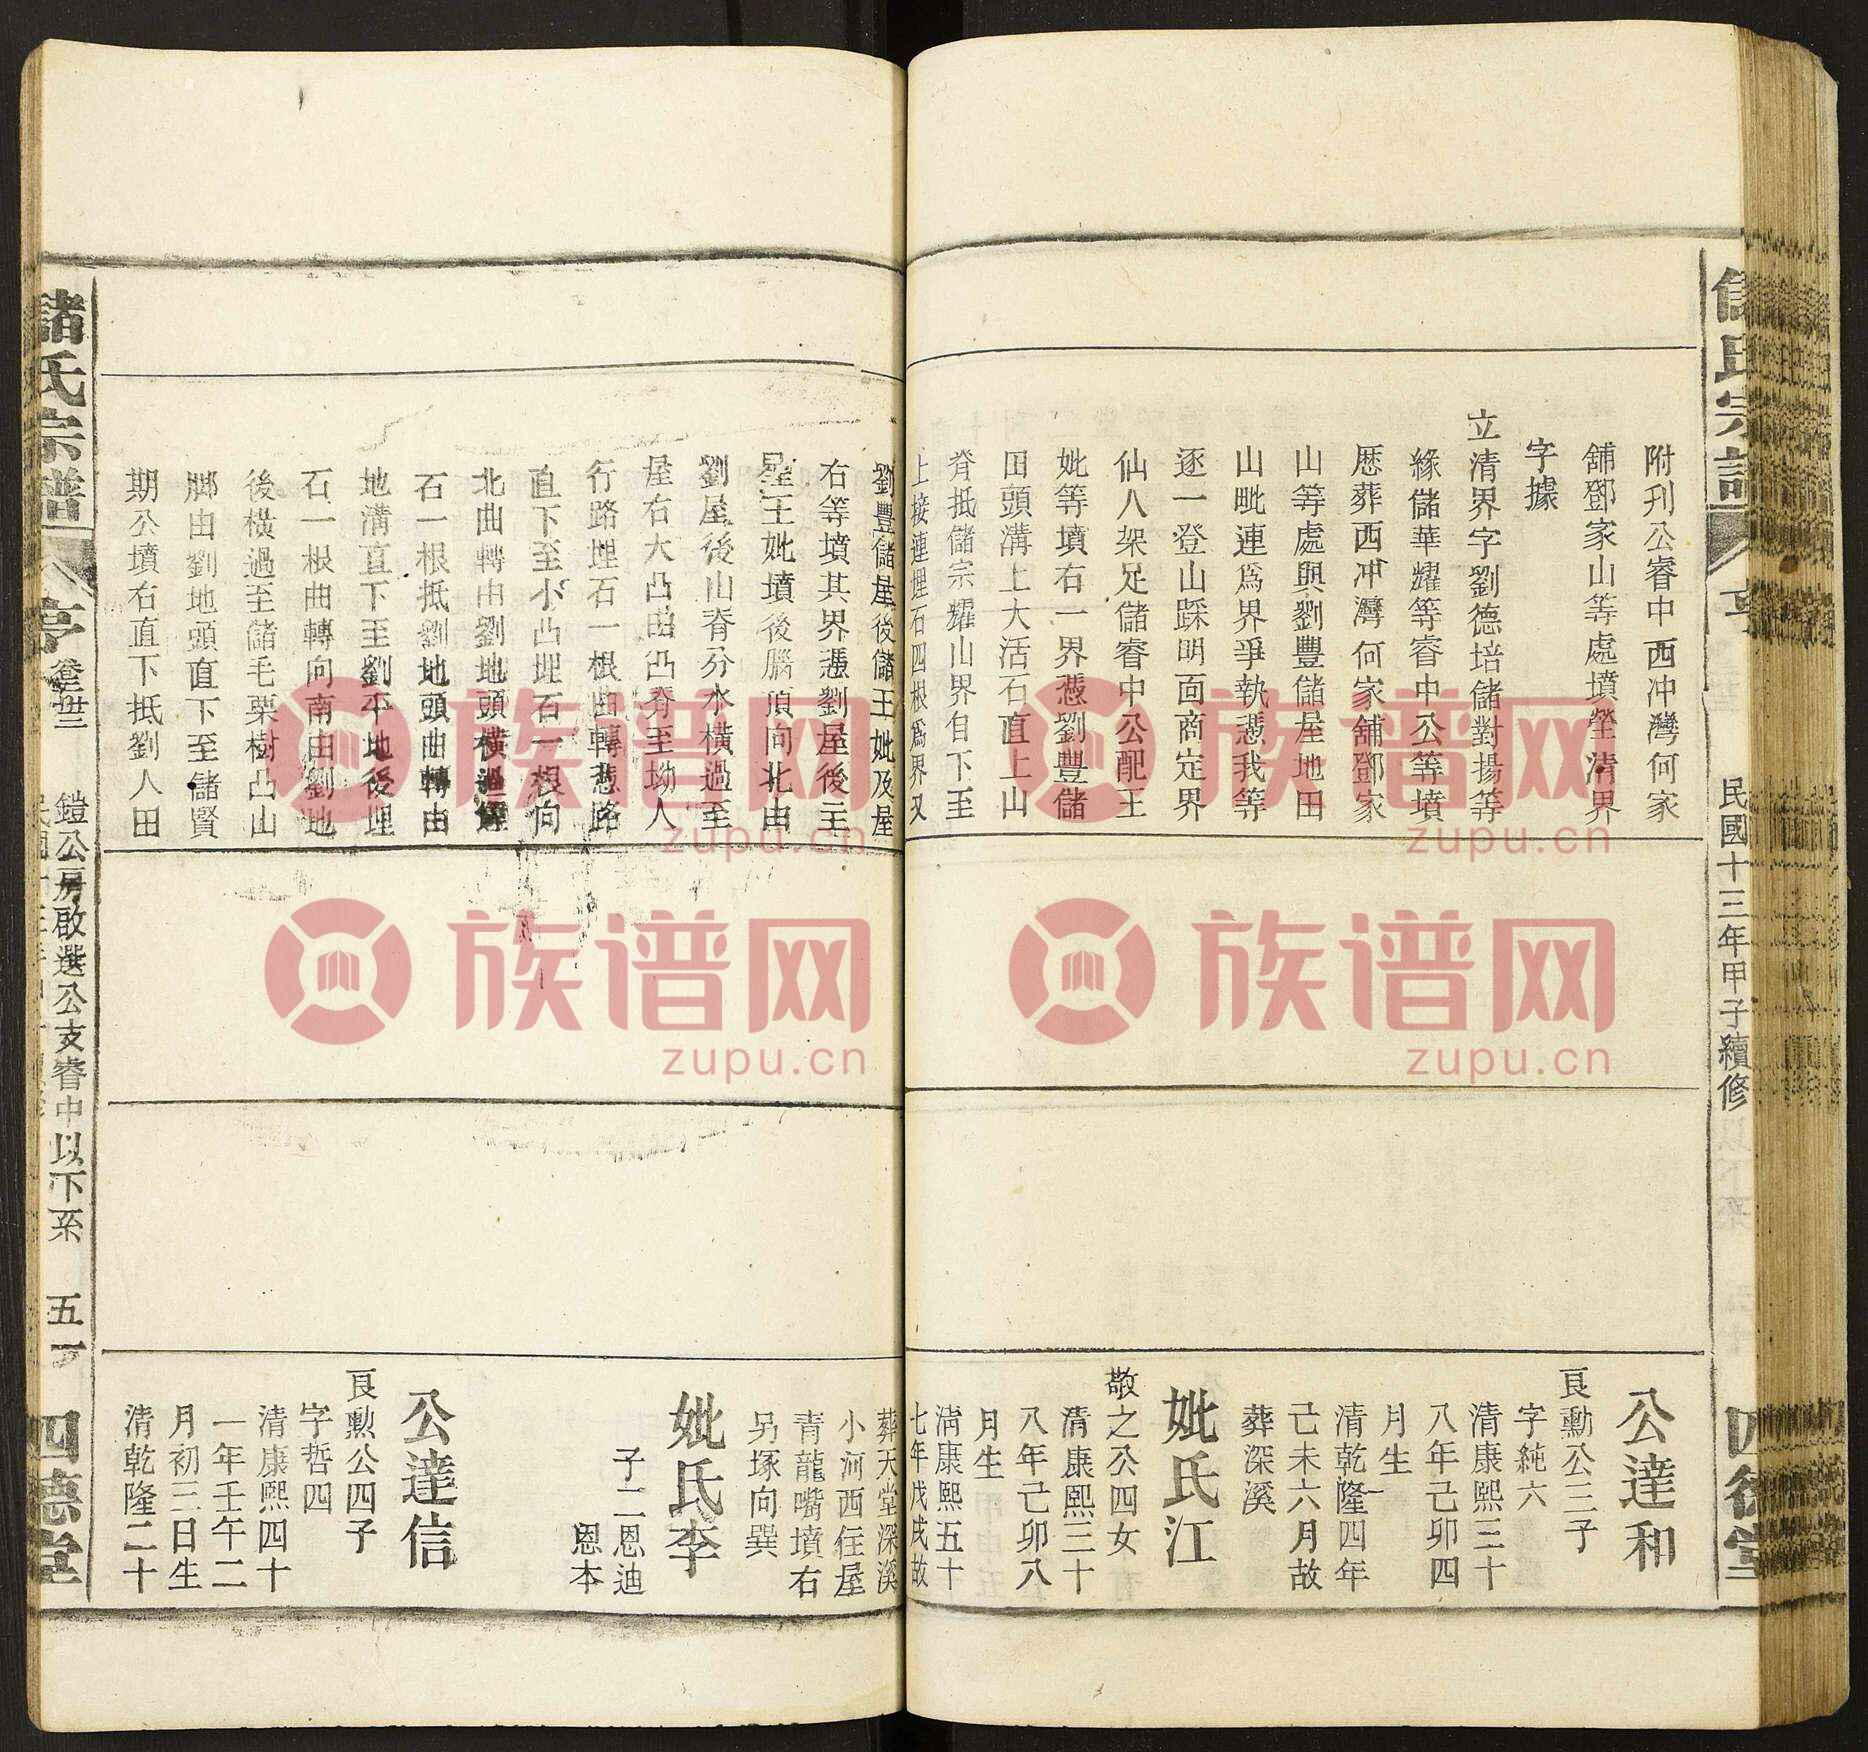 儲氏宗譜
民國十三年甲子續修
四德堂
附刊公睿中西冲灣何家
舖鄧家山等處墳塋清界
字據
立清界字劉德培儲對揚等
緣儲華耀等睿中公等墳
歷葬西冲灣何家舖鄧家
山等處與劉豐儲屋地田
山毗連爲界爭執憑我等
逐一登山踩明面商定界
仙八架足儲睿中公配王
妣等墳右一界憑劉豐儲
田頭溝上大活石直上山
脊抵儲宗耀山界自下至
上接連埋石四根爲界又
公達和
良勳公三子
字純六
清康熙三十
八年己卯四
月生
清乾隆四年
己未六月故
葬深溪
妣氏江
敬之公四女
清康熙三十
八年己卯八
月生
清康熙五十
七年戊戌故
劉豐儲屋後儲王妣及屋
右等墳其界憑劉屋後主
星王妣墳後腦頂向北由
劉屋後山脊分水橫過至
屋右大凸由凸脊至坳人
行路埋石一根曲轉憑路
直下至小凸埋石一根向
北曲轉由劉地頭橫過
石一根抵劉地頭曲轉由
地溝直下至劉平地後埋
石一根曲轉向南由劉地
後橫過至儲毛栗樹凸山
脚由劉地頭直下至儲賢
期公墳右直下抵劉人田
葬天堂深溪
小河西住屋
青龍嘴墳右
另塚向巽
妣氏李
子二恩迪
恩本
公達信
良勳公四子
字哲四
清康熙四十
一年壬午二
月初三日生
清乾隆二十
儲氏宗譜
亨
鎧公房啟選公支睿中以下系
五一
四德堂
族谱网
zupu.cn
族谱网
zupu.cn
族谱网
zupu.cn
族谱网
zupu.cn